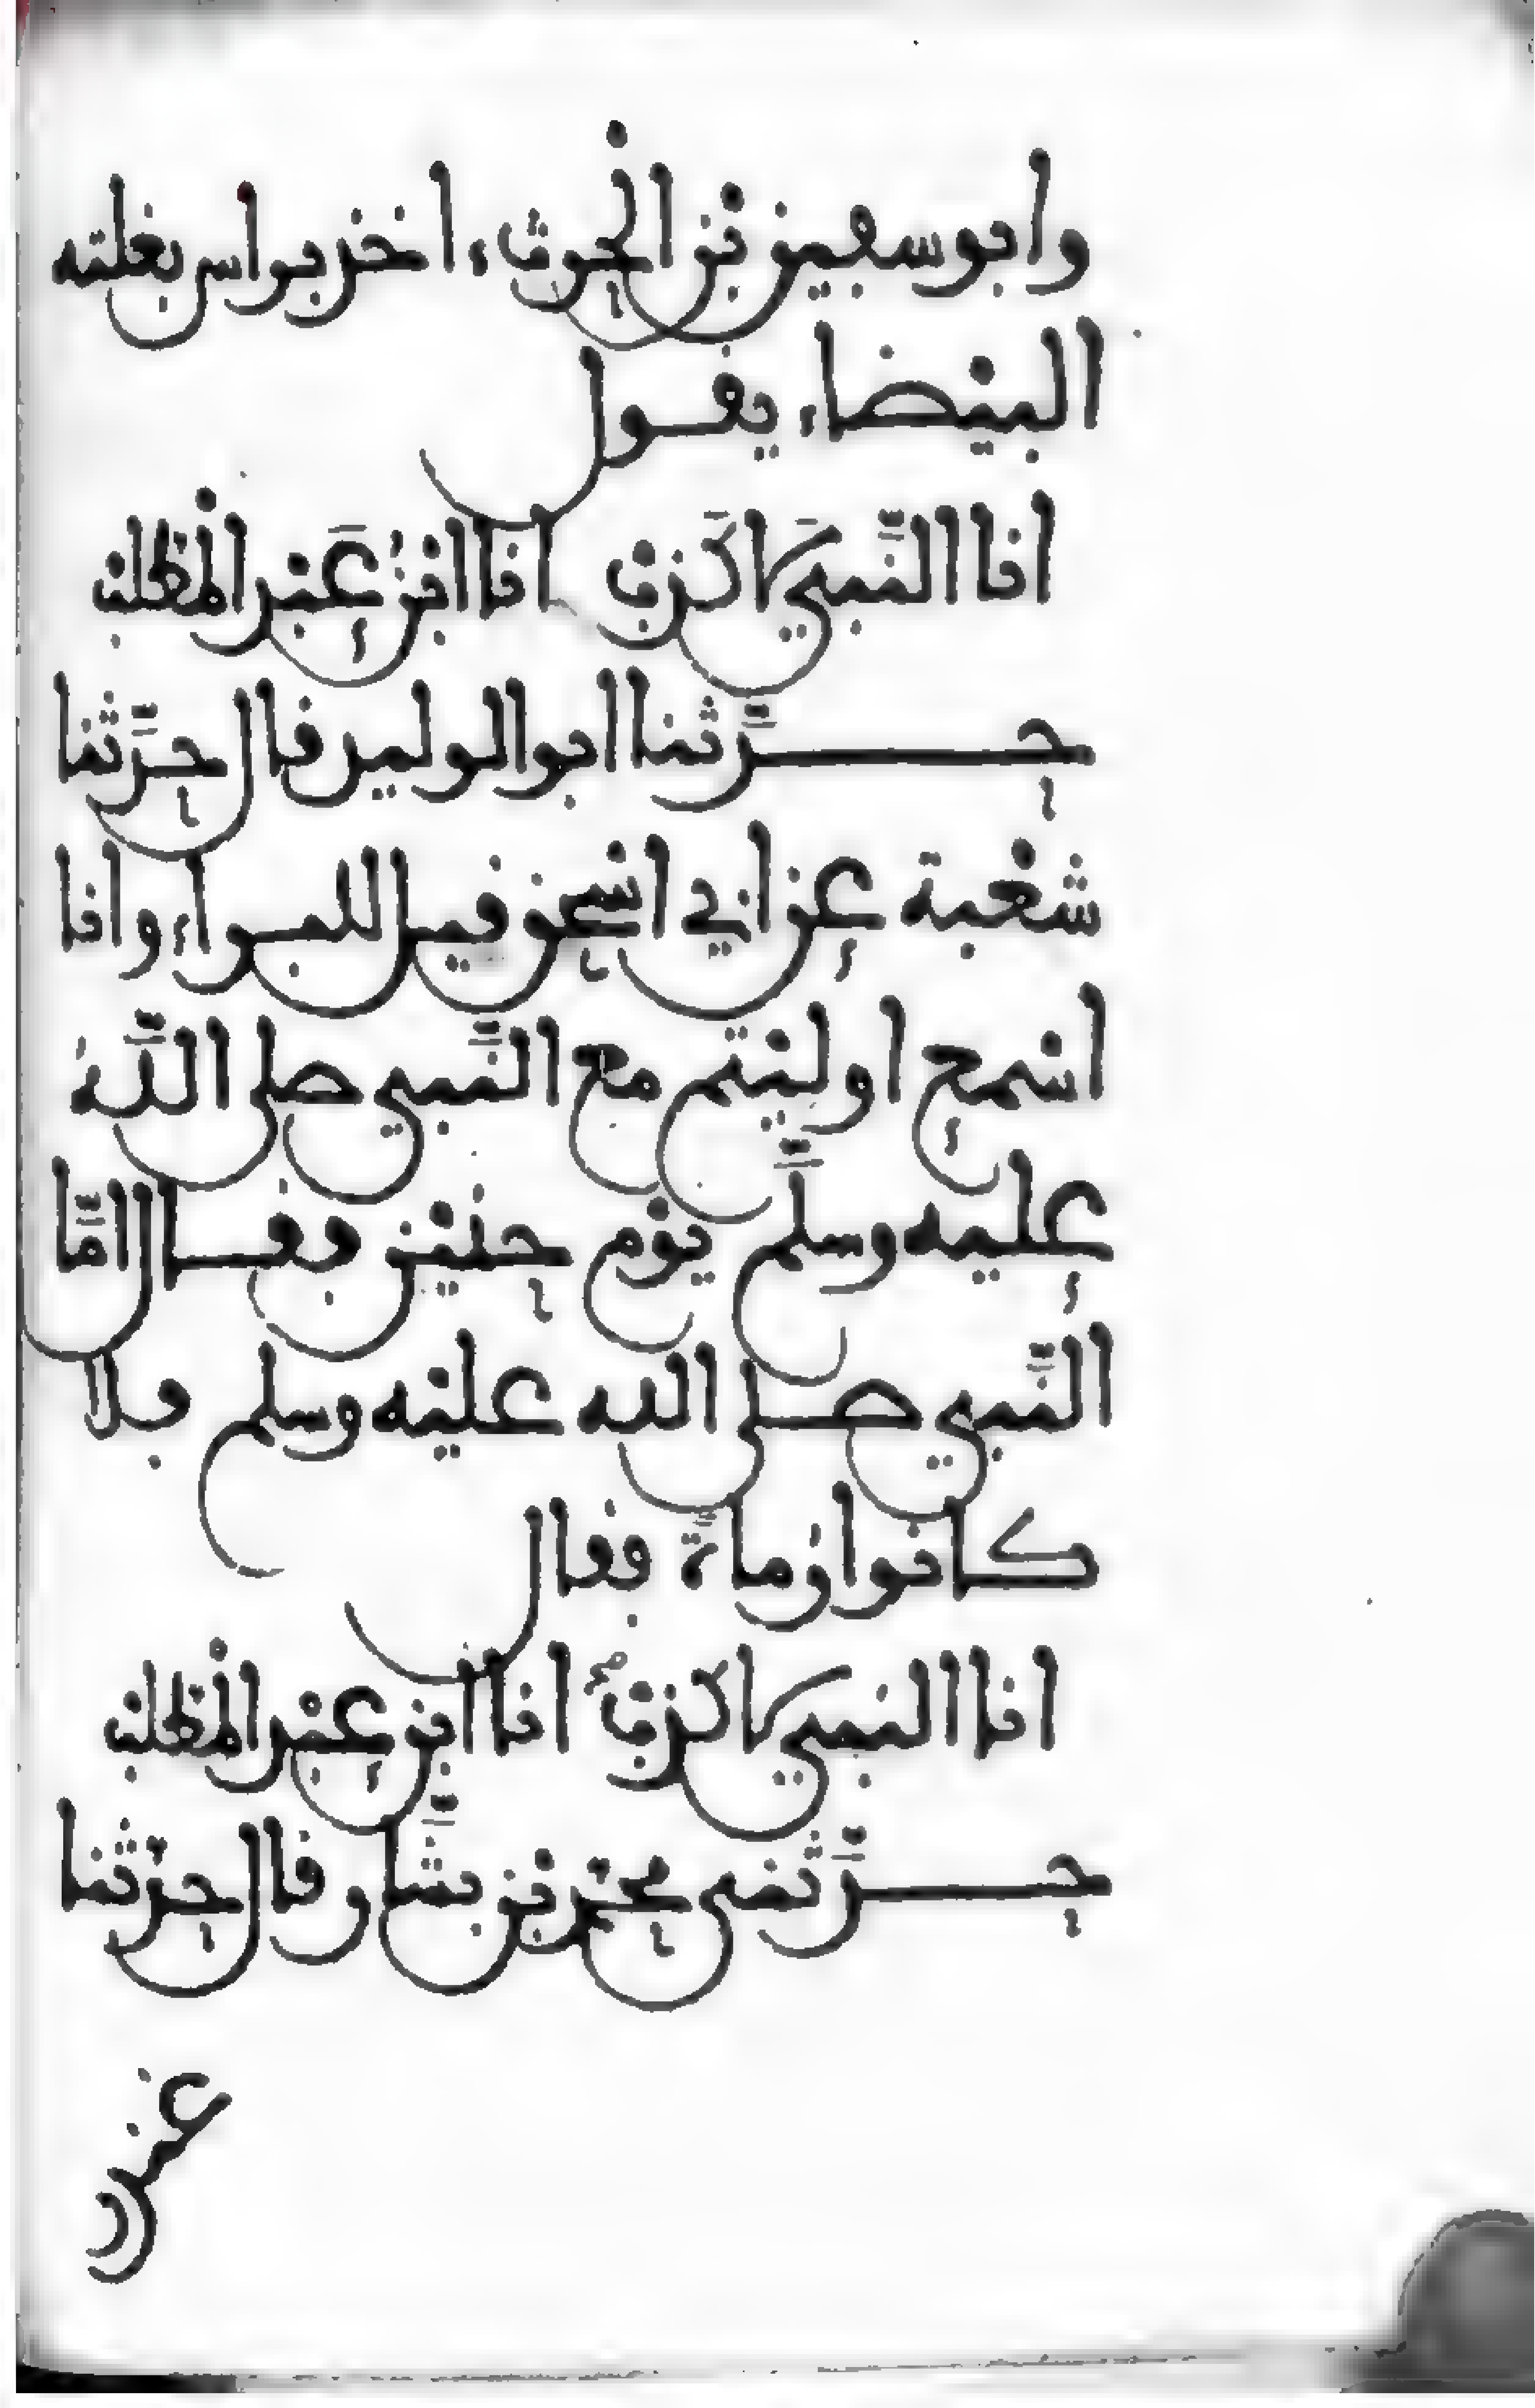 وابو سفين بن الحرث ءاخذ براس بغلته
البيضاء يقول
انا النَّبي لا كَذب انا ابن عَبد المطلب
حدَّثنا ابو الوليد قال حدَّثنا
شعبة عن ابي اسحق قيل للبراء وانا
اسمع اوليتم مع النَّبي صلى اللَّه
عليه وسلَّم يوم حنين فقال امَّا
النَّبي صلى الله عليه وسلم فلا
كانوا رماةً فقال
انا النبي لا كذب انا ابن عبد المطلب
حدَّثني محمد بن بشَّار قال حدثنا
غندر